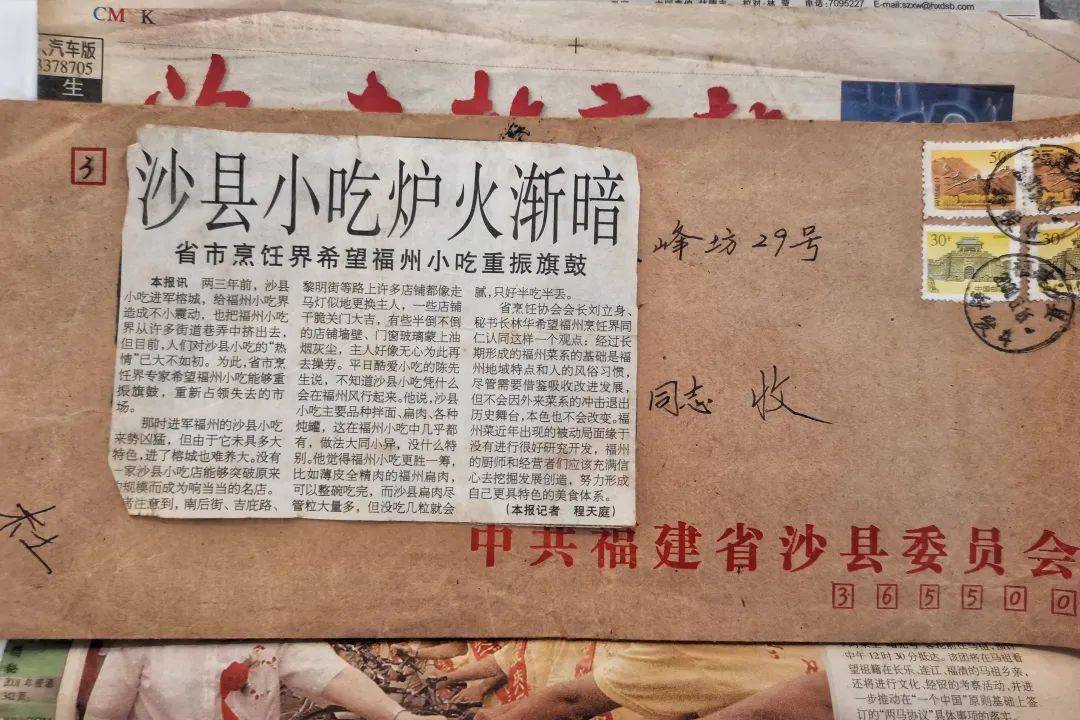 CM K
电话:7095227 E-mail:szxw@hxdsb.com
、汽车版
3378705
生
3
沙县小吃炉火渐暗
省市烹饪界希望福州小吃重振旗鼓
本报讯 两三年前，沙县
小吃进军榕城，给福州小吃界
造成不小震动，也把福州小吃
界从许多街道巷弄中挤出去，
但目前，人们对沙县小吃的“热
情”已大不如初。为此，省市烹
饪界专家希望福州小吃能够重
振旗鼓，重新占领失去的市
场。
那时进军福州的沙县小吃
来势凶猛，但由于它未具多大
特色，进了榕城也难养大。没有
一家沙县小吃店能够突破原来
的规模而成为响当当的名店。
者注意到，南后街、吉庇路、
黎明街等路上许多店铺都像走
马灯似地更换主人，一些店铺
干脆关门大吉，有些半倒不倒
的店铺墙壁、门窗玻璃蒙上油
烟灰尘，主人好像无心为此再
去操劳。平日酷爱小吃的陈先
生说，不知道沙县小吃凭什么
会在福州风行起来。他说，沙县
小吃主要品种拌面、扁肉、各种
炖罐，这在福州小吃中几乎都
有，做法大同小异，没什么特
别。他觉得福州小吃更胜一筹，
比如薄皮全精肉的福州扁肉，
可以整碗吃完，而沙县扁肉尽
管粒大量多，但没吃几粒就会
腻，只好半吃半丢。
省烹饪协会会长刘立身、
秘书长林华希望福州烹饪界同
仁认同这样一个观点：经过长
期形成的福州菜系的基础是福
州地域特点和人的风俗习惯，
尽管需要借鉴吸收改进发展，
但不会因外来菜系的冲击退出
历史舞台，本色也不会改变。福
州菜近年出现的被动局面缘于
没有进行很好研究开发，福州
的厨师和经营者们应该充满信
心去挖掘发展创造，努力形成
自己更具特色的美食体系。
(本报记者 程天庭)
峰坊29号
同志 收
50
30
30
中共福建省沙县委员会
365500
中午12时30分抵达。该团将在马祖看
望祖籍在长乐、连江、福清的马祖乡亲，
还将进行文化、经贸的考察活动，并进
一步推动在“一个中国”原则基础上签
订的“两马协议”具体事项的落实。